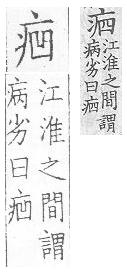 江淮之間謂
病劣曰
江淮之間謂
病劣曰